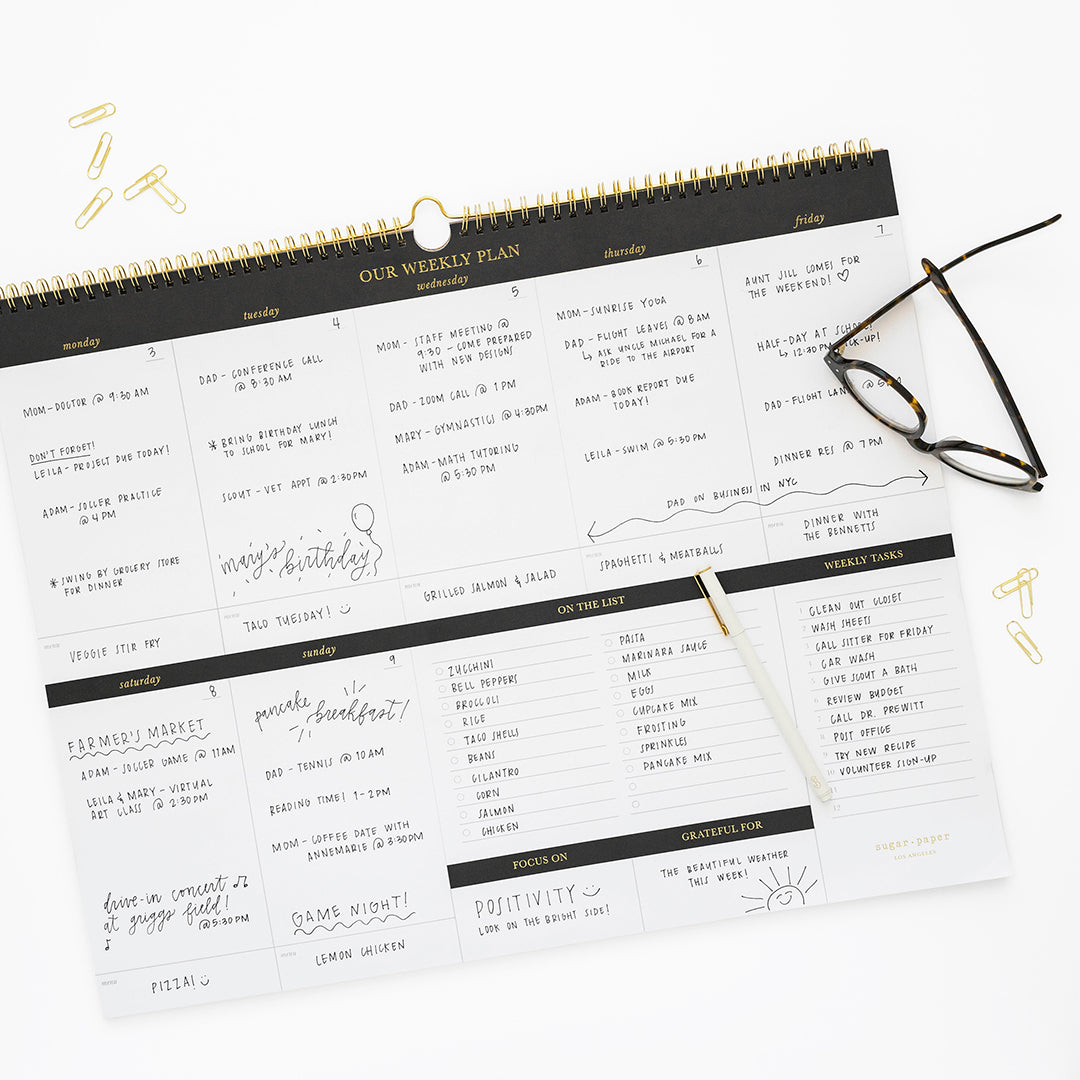 OUR WEEKLY PLAN
monday
3
MOM-DOCTOR @ 9:30 AM
DON'T FORGET!
LEILA-PROJECT DUE TODAY!
ADAM-SOCCER PRACTICE
@ 4 PM
* SWING BY GROCERY STORE
FOR DINNER
menu
VEGGIE STIR FRY
tuesday
4
DAD-CONFERENCE CALL
@ 8:30 AM
* BRING BIRTHDAY LUNCH
TO SCHOOL FOR MARY!
SCOUT-VET APPT @ 2:30PM
mary's birthday
menu
TACO TUESDAY!
wednesday
5
MOM-STAFF MEETING @
9:30-COME PREPARED
WITH NEW DESIGNS
DAD-ZOOM CALL @ 1PM
MARY-GYMNASTICS @ 4:30PM
ADAM-MATH TUTORING
@ 5:30 PM
menu
GRILLED SALMON & SALAD
thursday
6
MOM-SUNRISE YOGA
DAD-FLIGHT LEAVES @ 8AM
↳ ASK UNCLE MICHAEL FOR A
RIDE TO THE AIRPORT
ADAM-BOOK REPORT DUE
TODAY!
LEILA-SWIM @ 5:30PM
DAD ON BUSINESS IN NYC
menu
SPAGHETTI & MEATBALLS
friday
7
AUNT JILL COMES FOR
THE WEEKEND! ♡
HALF-DAY AT SCHOOL!
↳ 12:30PM
DAD-FLIGHT
DINNER RES @ 7PM
menu
DINNER WITH
THE BENNETTS
saturday
8
FARMER'S MARKET
ADAM-SOCCER GAME @ 11AM
LEILA & MARY-VIRTUAL
ART CLASS @ 2:30PM
drive-in concert
at griggs field!
@ 5:30PM
menu
PIZZA!
sunday
9
pancake
breakfast!
DAD-TENNIS @ 10AM
READING TIME! 1-2PM
MOM-COFFEE DATE WITH
ANNEMARIE @ 3:30PM
GAME NIGHT!
menu
LEMON CHICKEN
ON THE LIST
ZUCCHINI
BELL PEPPERS
BROCCOLI
RICE
TACO SHELLS
BEANS
CILANTRO
CORN
SALMON
CHICKEN
PASTA
MARINARA SAUCE
MILK
EGGS
CUPCAKE MIX
FROSTING
SPRINKLES
PANCAKE MIX
WEEKLY TASKS
1 CLEAN OUT CLOSET
2 WASH SHEETS
3 CALL SITTER FOR FRIDAY
4 CAR WASH
5 GIVE SCOUT A BATH
6 REVIEW BUDGET
7 CALL DR. PREWITT
8 POST OFFICE
9 TRY NEW RECIPE
10 VOLUNTEER SIGN-UP
11
12
FOCUS ON
POSITIVITY
LOOK ON THE BRIGHT SIDE!
GRATEFUL FOR
THE BEAUTIFUL WEATHER
THIS WEEK!
sugar·paper
LOS ANGELES